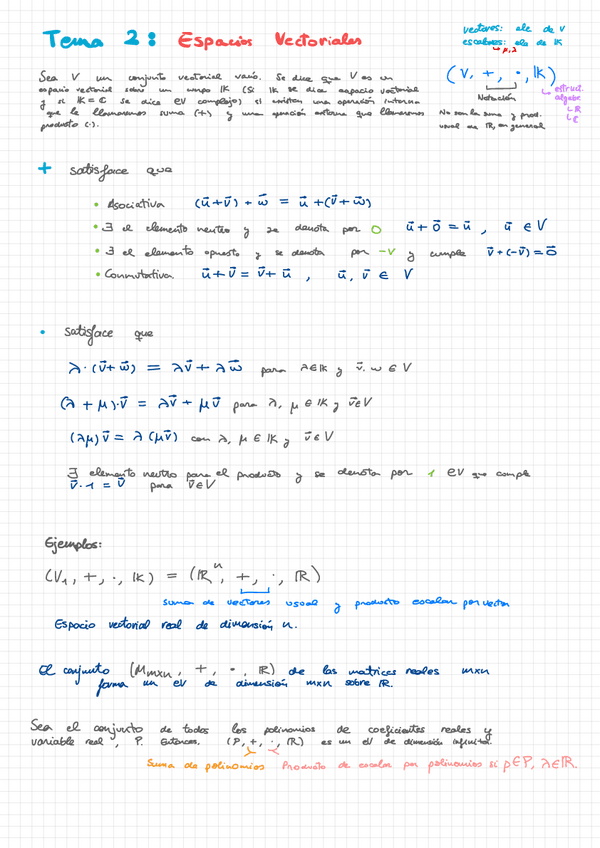 Tema 2: Espacios Vectoriales
vectores: ele de V
escalares: ele de K
μ, λ
Sea V un conjunto vectorial vacío. Se dice que V es un
espacio vectorial sobre un cuerpo K (si K se dice espacio vectorial
y si K = C se dice eV complejo) si existen una operación interna
que la llamaremos suma (+) y una operación externa que llamaremos
producto (·).
(V, +, ·, K)
Notación
estruct.
algebr.
R
C
No son la suma y prod.
usual de R, en general
+ satisface que
• Asociativa (u⃗+v⃗) + w⃗ = u⃗ +(v⃗ + w⃗)
• ∃ el elemento neutro y se denota por 0 u⃗ + 0⃗ = u⃗ , u⃗ ∈ V
• ∃ el elemento opuesto y se denota por -v y cumple v⃗ + (-v⃗) = 0⃗
• Conmutativa u⃗ + v⃗ = v⃗ + u⃗ , u⃗, v⃗ ∈ V
• satisface que
λ · (v⃗ + w⃗) = λv⃗ + λw⃗ para λ∈K y v⃗, w ∈ V
(λ + μ)·v⃗ = λv⃗ + μv⃗ para λ, μ ∈ K y v⃗∈V
(λμ)v⃗ = λ(μv⃗) con λ, μ ∈ K y v⃗ ∈ V
∃ elemento neutro para el producto y se denota por 1 ∈V que cumple
v⃗ · 1 = v⃗ para v⃗∈V
Ejemplos:
(V₁, +, ·, K) = (Rⁿ, +, ·, R)
suma de vectores usual y producto escalar por vector
Espacio vectorial real de dimensión n.
El conjunto (Mmxn, +, ·, R) de las matrices reales mxn
forma un eV de dimensión mxn sobre R.
Sea el conjunto de todos los polinomios de coeficientes reales y
variable real, P. Entonces, (P, +, ·, R) es un eV de dimensión infinita.
Suma de polinomios Producto de escalar por polinomios si p∈P, λ∈R.